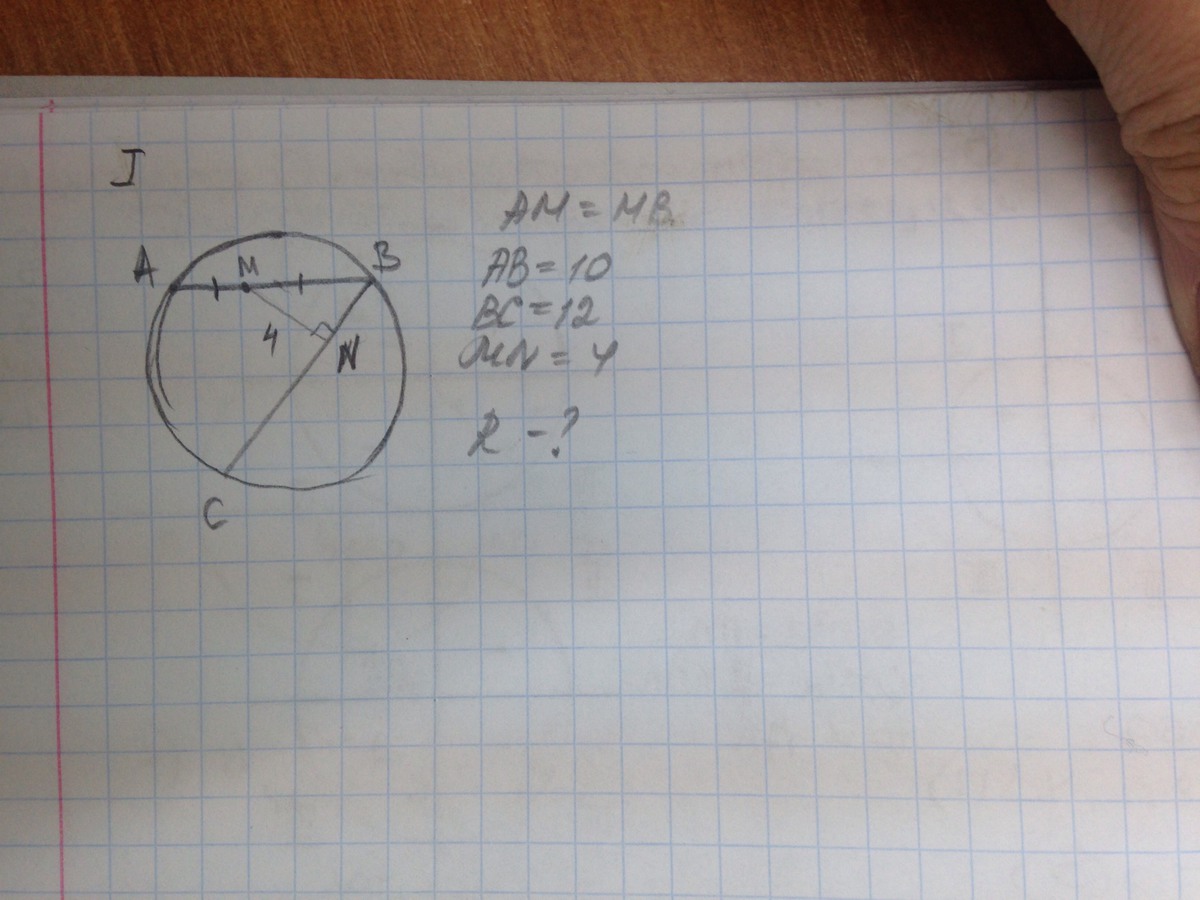 I
A
M
B
4
N
C
AM = MB
AB = 10
BC = 12
MN = 4
R - ?